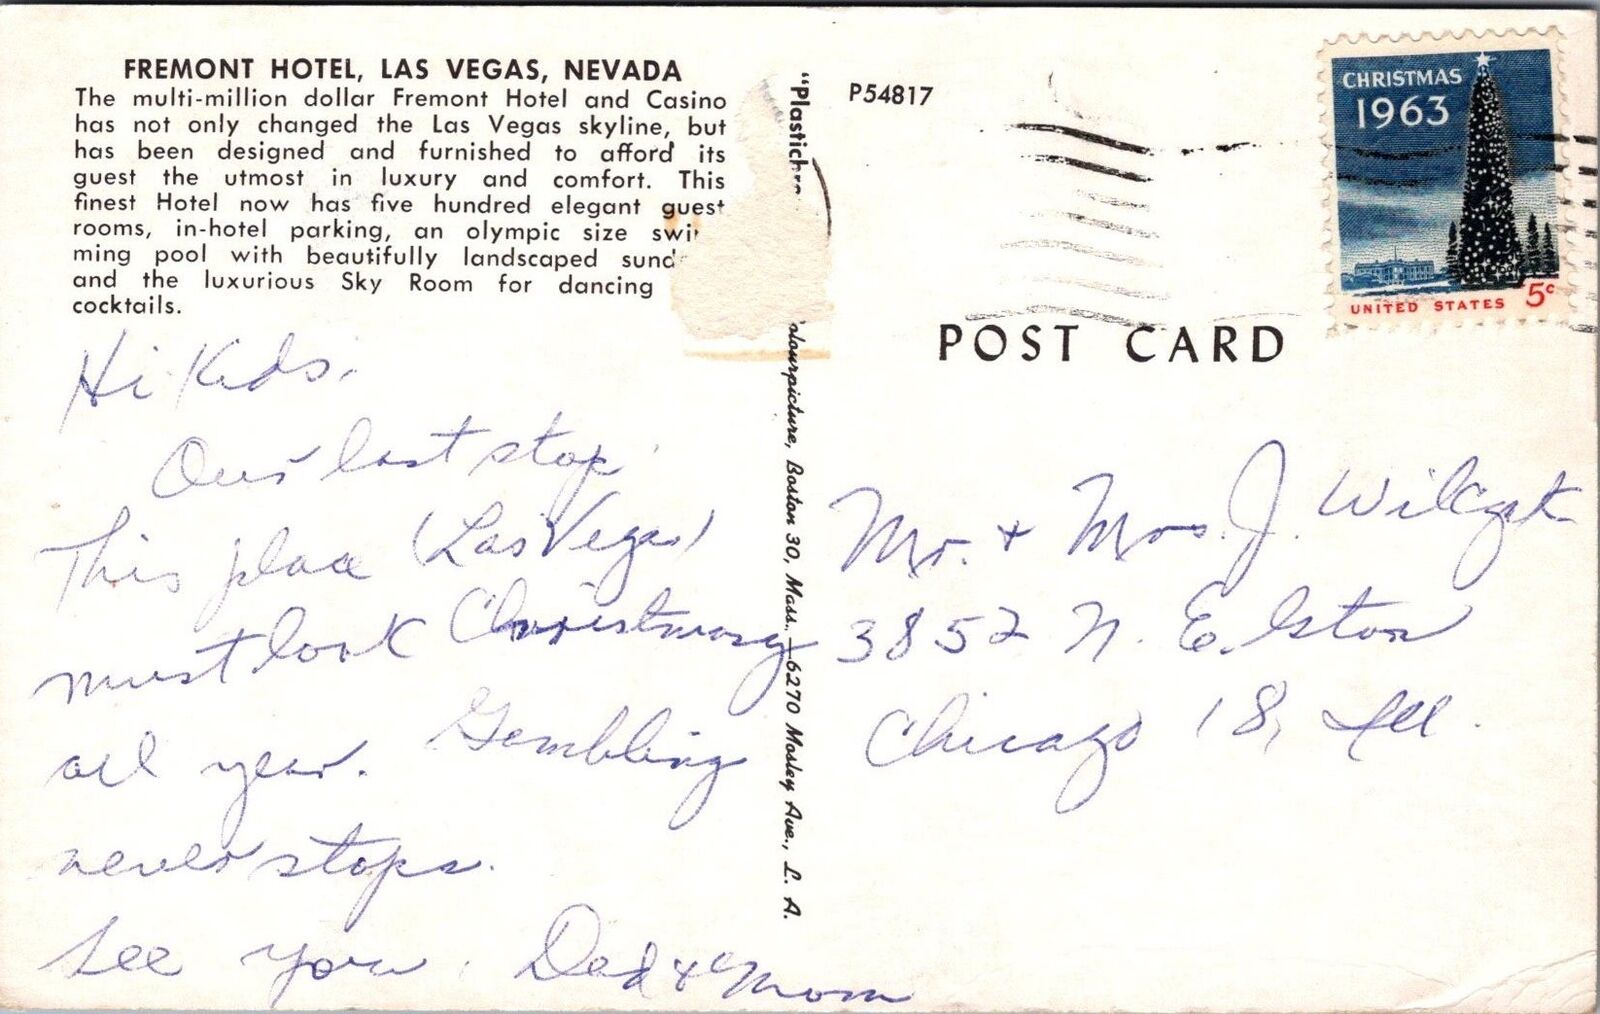 FREMONT HOTEL, LAS VEGAS, NEVADA
The multi-million dollar Fremont Hotel and Casino
has not only changed the Las Vegas skyline, but
has been designed and furnished to afford its
guest the utmost in luxury and comfort. This
finest Hotel now has five hundred elegant guest
rooms, in-hotel parking, an olympic size swi
ming pool with beautifully landscaped sund
and the luxurious Sky Room for dancing
cocktails.
Hi Kids.
Our last stop.
This place (Las Vegas)
must look Christmasy
all year. Gambling
never stops.
See you. Dad & Mom
"Plastichr olourpicture, Boston 30, Mass. — 6270 Mosley Ave., L. A.
P54817
CHRISTMAS
1963
UNITED STATES 5c
POST CARD
Mr. + Mrs. J.
3852 N. Elston
Chicago 18, Ill.